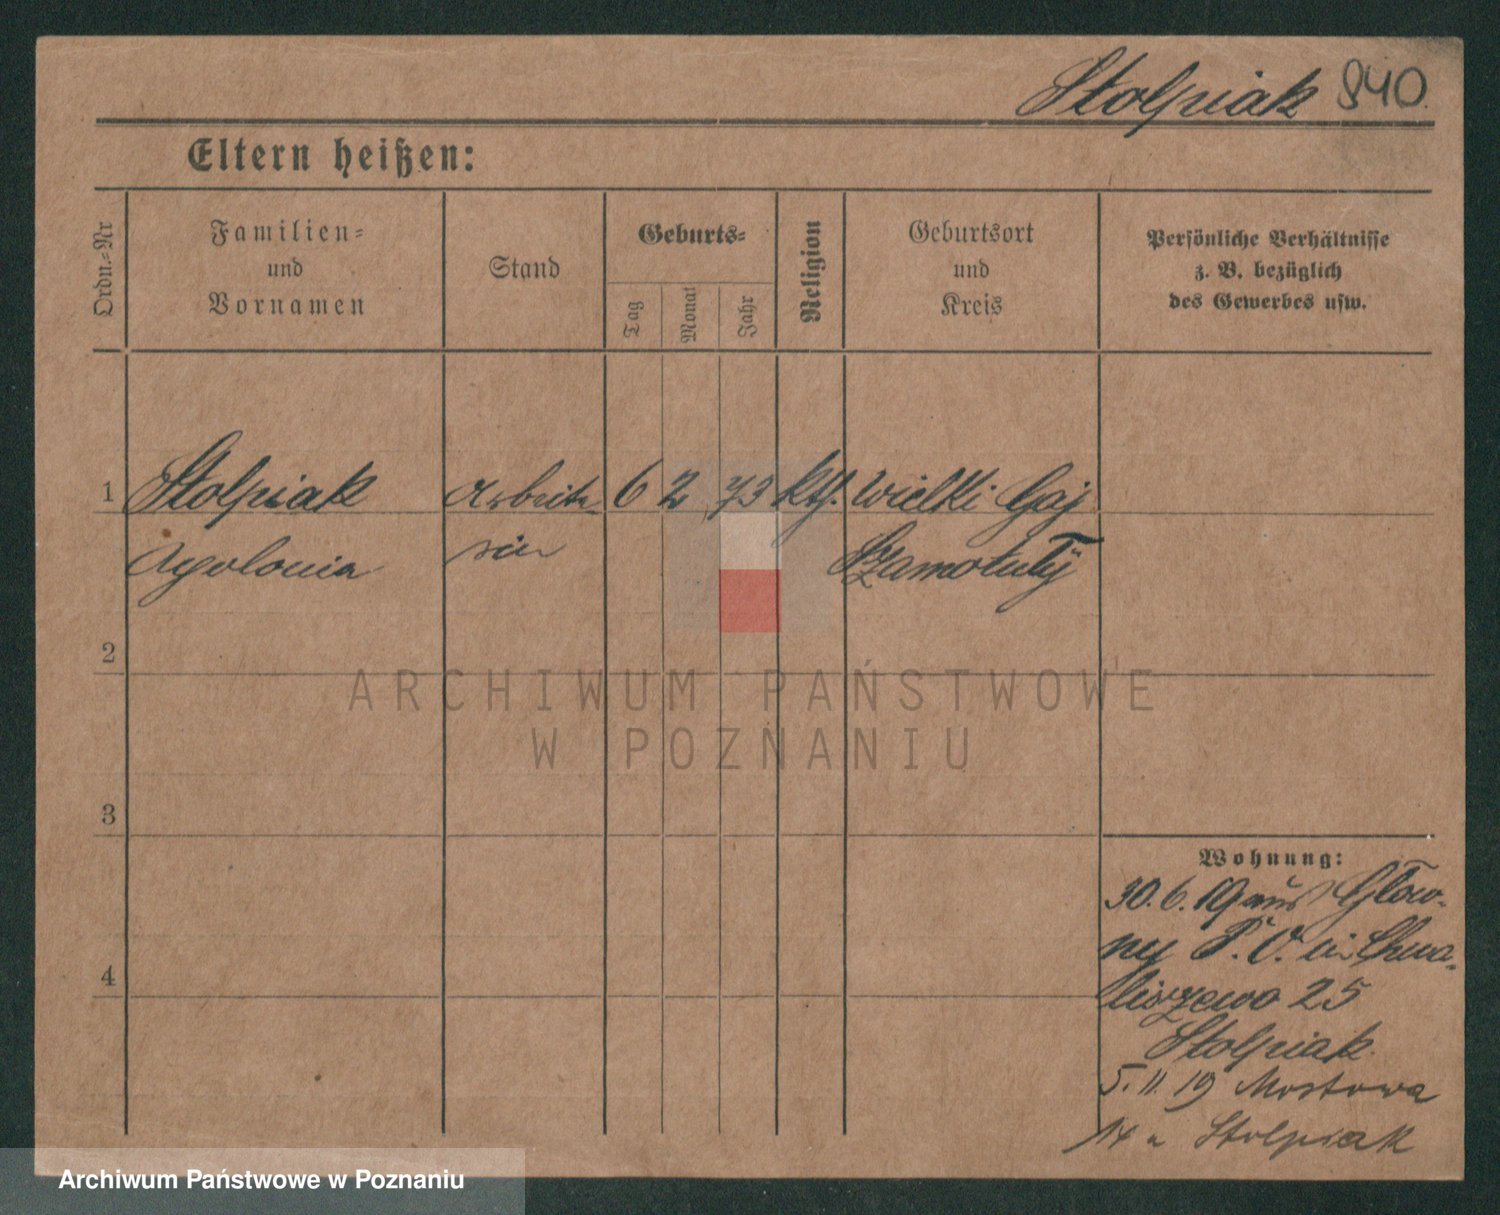 Stolpiak 940.
Eltern heißen:
Ordn.-Nr
Familien-
und
Vornamen
Stand
Geburts-
Tag
Monat
Jahr
Religion
Geburtsort
und
Kreis
Persönliche Verhältnisse
z. B. bezüglich
des Gewerbes usw.
1 Stolpiak Arbeite- 6 2 73 kth. Wielki Gaj
Apolonia rin Szamotuły
2
3
4
Wohnung:
30.6.19 aus Głow-
ny P. O. in Chwa-
liszewo 25
Stolpiak
5.11.19 Mostowa
14 Stolpiak
ARCHIWUM PAŃSTWOWE
W POZNANIU
Archiwum Państwowe w Poznaniu